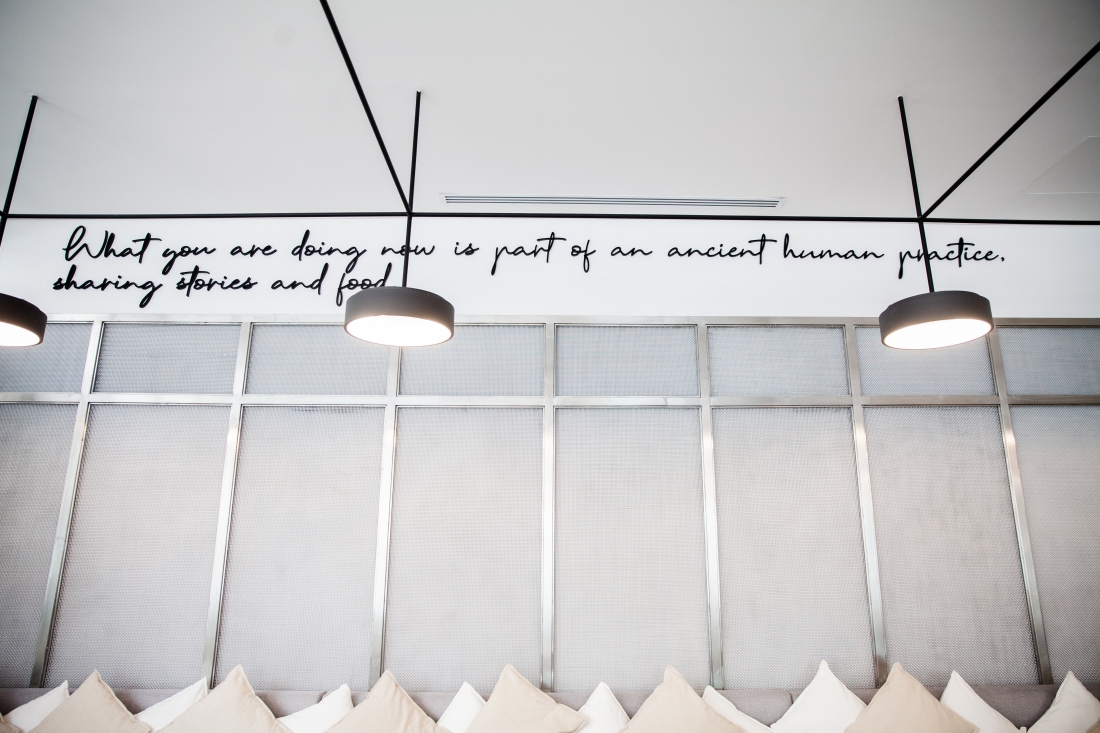 What you are doing now is part of an ancient human practice,
sharing stories and food